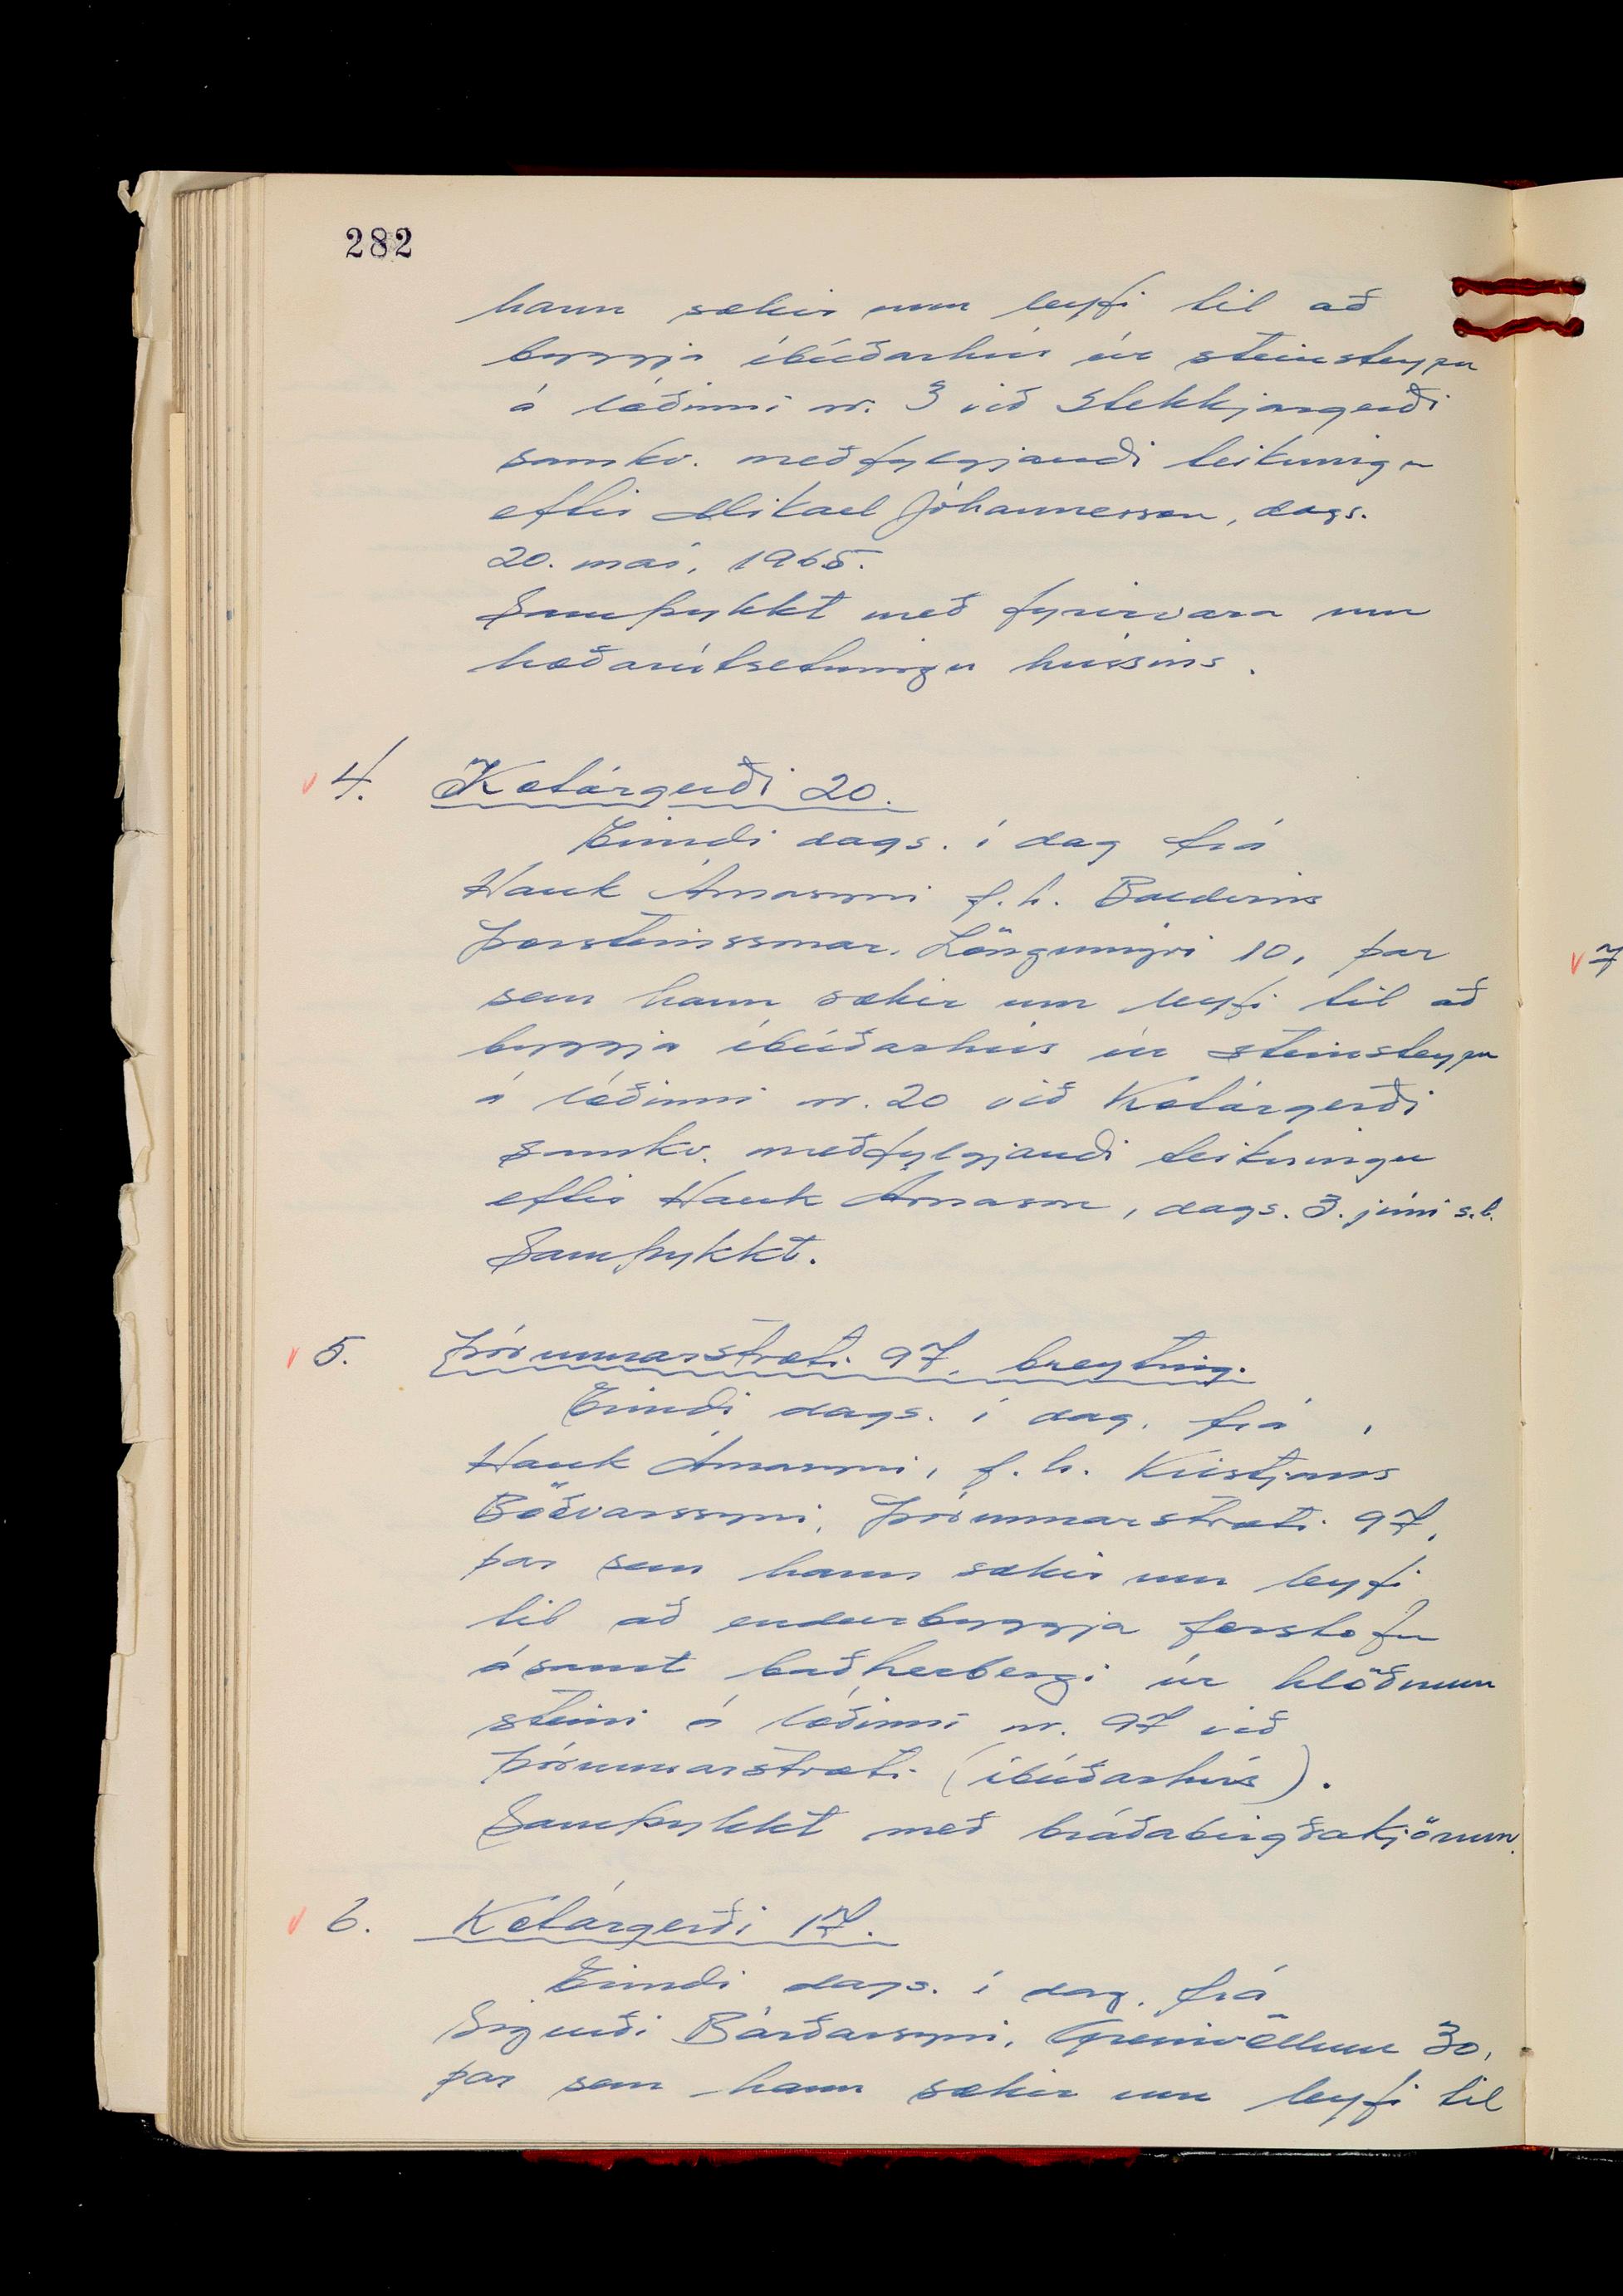 282
hann sækir um leyfi til að
byggja íbúðarhús úr steinsteypu
á lóðinni nr. 3 við Stekkjargerði
samkv. meðfylgjandi teikningu
eftir Mikael Jóhannesson, dags.
20. maí, 1965.
Samþykkt með fyrirvara um
hæðarútsetningu hússins.
4. Kotárgerði 20.
Erindi dags. í dag frá
Hauk Árnasyni f.h. Baldvins
Þorsteinssonar, Löngumýri 10, þar
sem hann sækir um leyfi til að
byggja íbúðarhús úr steinsteypu
á lóðinni nr. 20 við Kotárgerði
samkv. meðfylgjandi teikningu
eftir Hauk Árnason, dags. 3. júní s.l.
Samþykkt.
5. Þórunnarstræti 97, breyting.
Erindi dags. í dag, frá
Hauk Árnasyni, f.h. Kristjáns
Böðvarssyni, Þórunnarstræti 97,
þar sem hann sækir um leyfi
til að endurbyggja forstofu
ásamt baðherbergi úr hlöðnum
steini á lóðinni nr. 97 við
Þórunnarstræti (íbúðarhús).
Samþykkt með bráðabirgðakjörum.
6. Kotárgerði 17.
Erindi dags. í dag, frá
Sigurði Bárðarsyni, Grenivöllum 30,
þar sem hann sækir um leyfi til
7